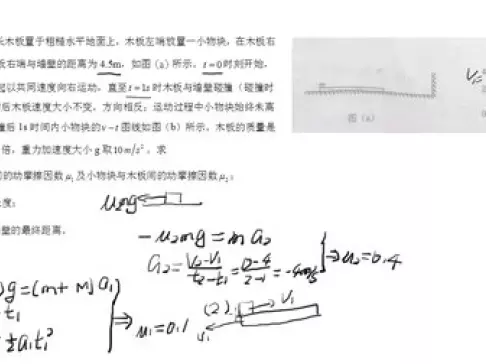 长木板置于粗糙水平地面上,木板左端放置一小物块,在木板右
板右端与墙壁的距离为4.5m,如图(a)所示。t=0时刻开始,
起以共同速度向右运动,直至t=1s时木板与墙壁碰撞(碰撞时
后木板速度大小不变,方向相反;运动过程中小物块始终未离
撞后1s时间内小物块的v-t图线如图(b)所示。木板的质量是
倍,重力加速度大小g取10m/s²。求
间的动摩擦因数μ₁及小物块与木板间的动摩擦因数μ₂;
长度;
墙壁的最终距离。
图(a)
μ₂mg
-μ₂mg=ma₂
a₂=(v₂-v₁)/(t₂-t₁)=(0-4)/(2-1)=-4m/s²
⇒μ₂=0.4
)g=(m+M)a₁
t₁
½a₁t₁²
⇒μ₁=0.1
(2).
v₁
v₁